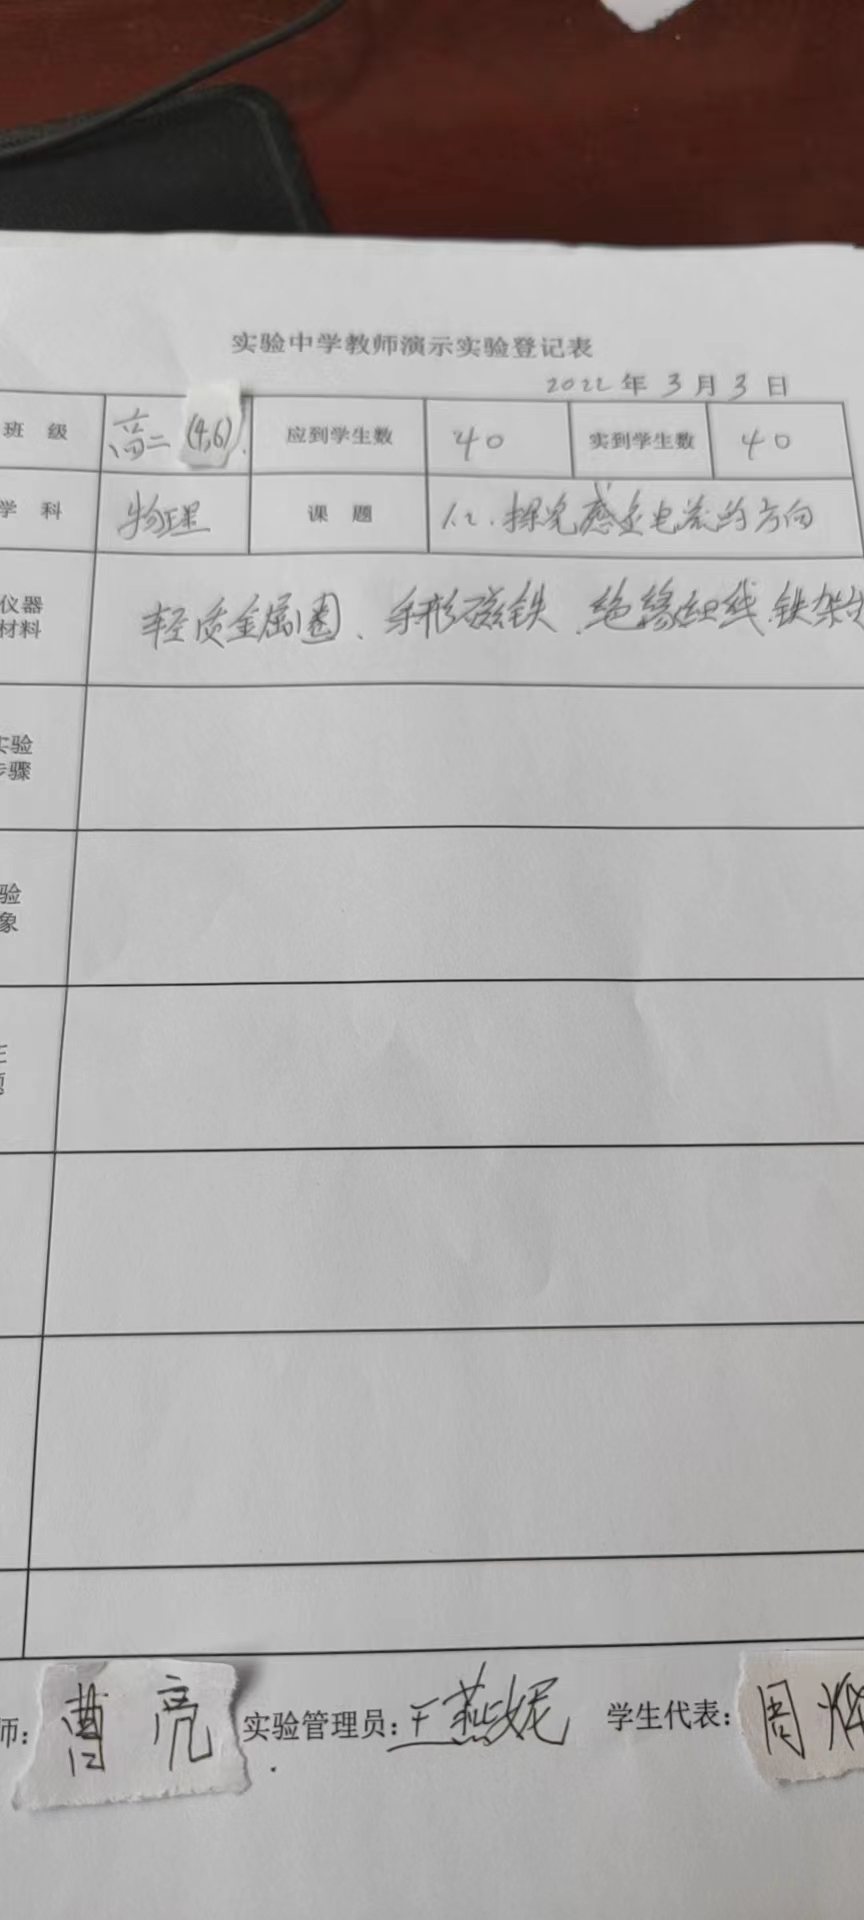 实验中学教师演示实验登记表
2022年3月3日
班级 高二(4,6). 应到学生数 40 实到学生数 40
学科 物理 课题 1.2.探究感应电流的方向
仪器
材料
轻质金属圈、条形磁铁、绝缘细线、铁架台
实验
步骤
验
象
师: 曹亮 实验管理员: 王燕妮 学生代表: 周